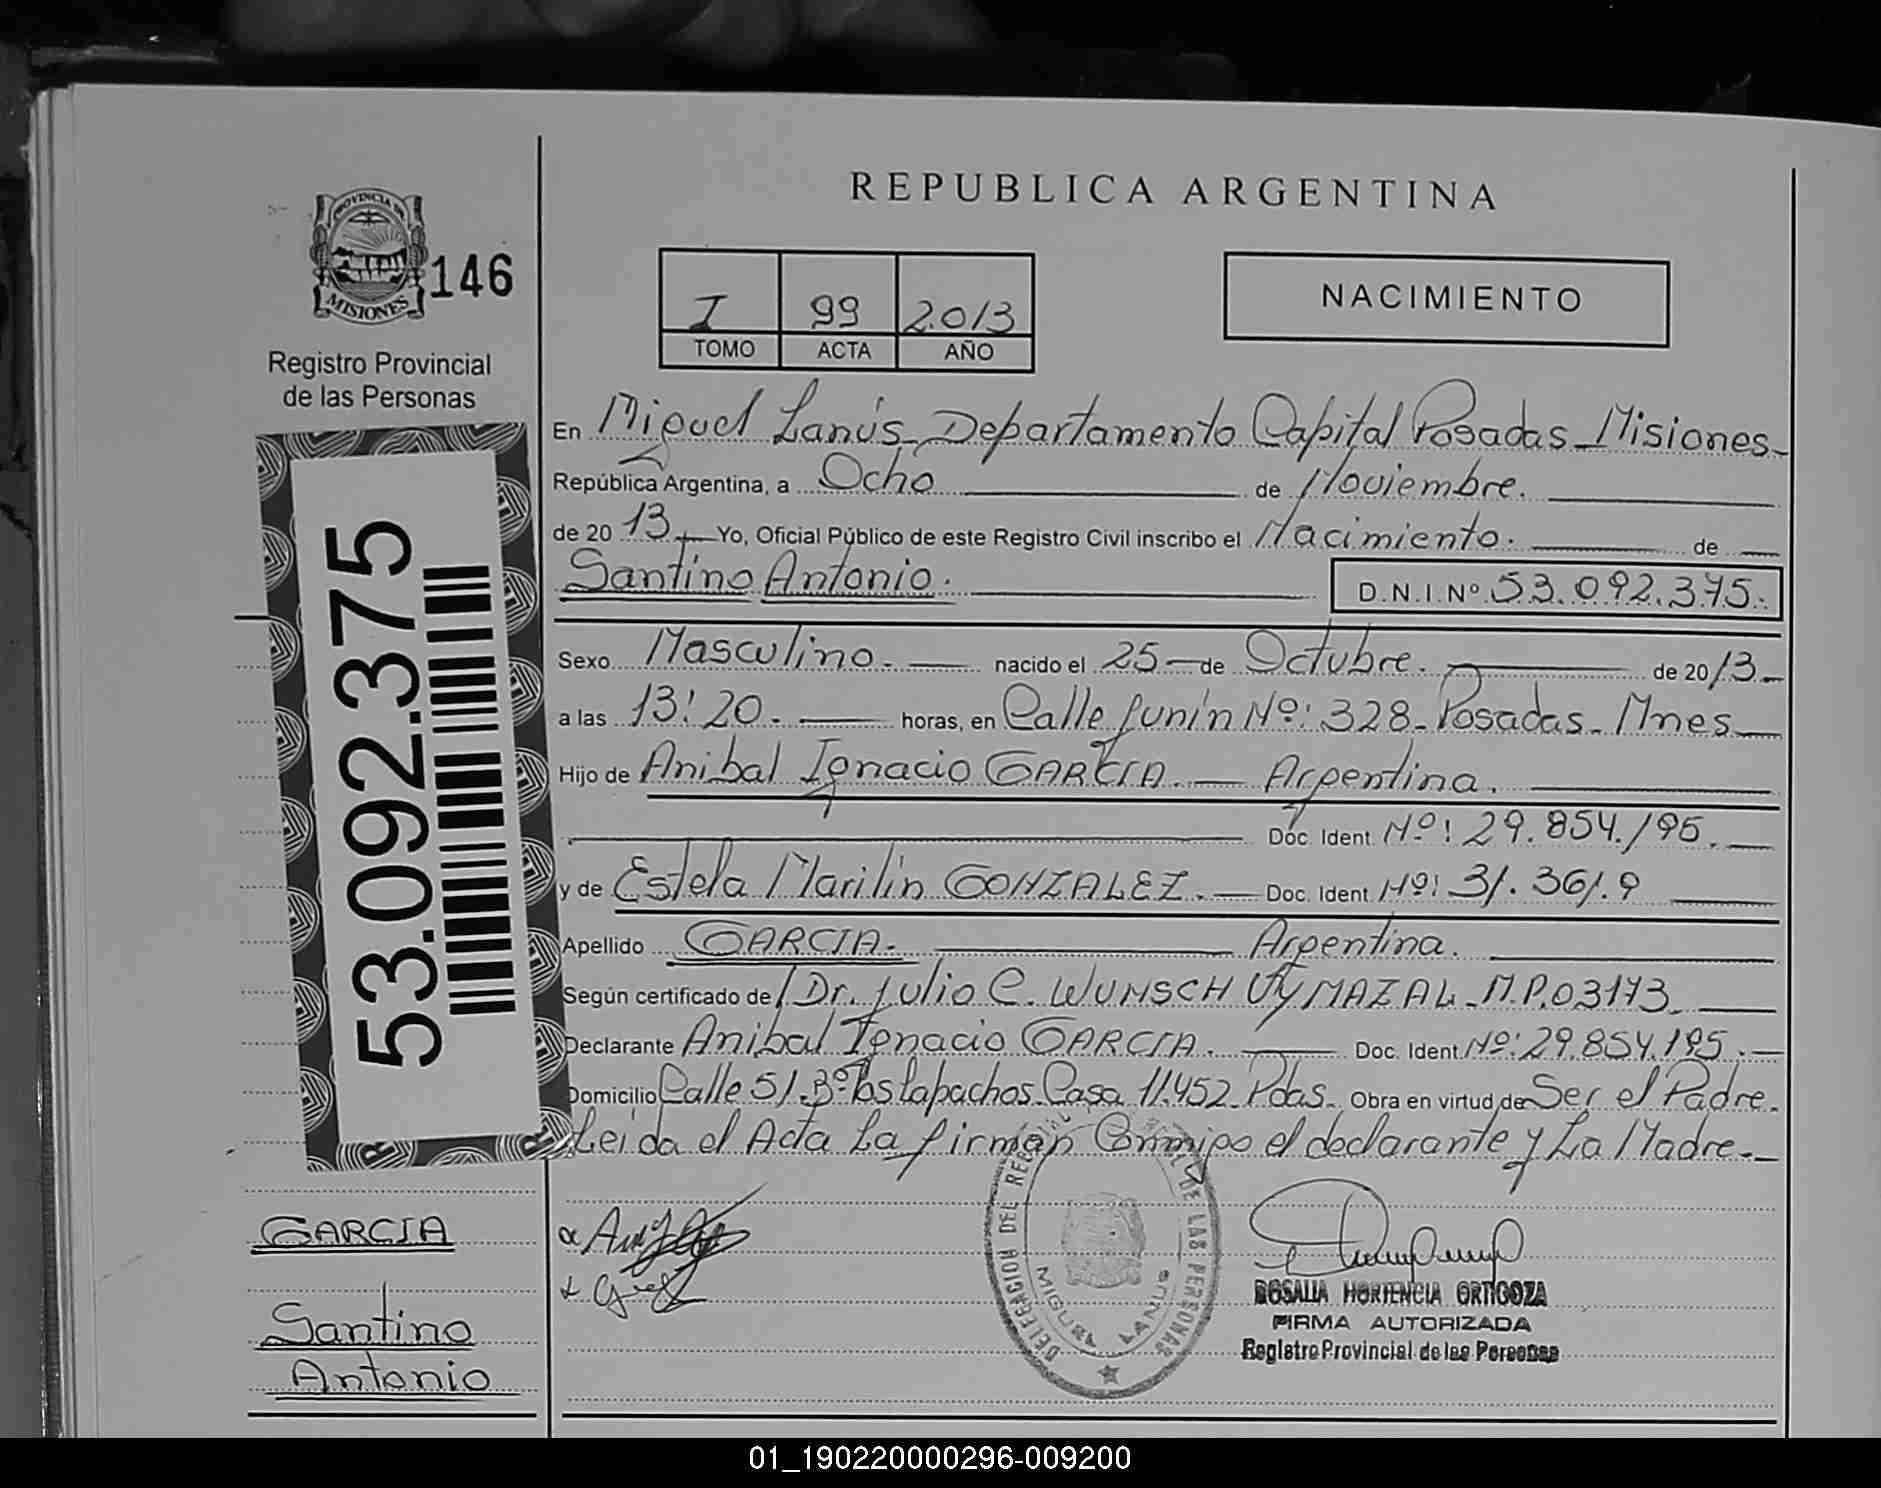 REPUBLICA ARGENTINA
PROVINCIA DE
MISIONES
146
Registro Provincial
de las Personas
I 99 2013
TOMO ACTA AÑO
NACIMIENTO
En Miguel Lanús_Departamento Capital Posadas_Misiones_
República Argentina, a Ocho de Noviembre.
de 20 13 Yo, Oficial Público de este Registro Civil inscribo el Nacimiento. de
Santino Antonio. D.N.I.Nº 53.092.375.
53.092.375
Sexo Masculino. nacido el 25 de Octubre. de 2013
a las 13:20. horas, en Calle Junín Nº: 328_Posadas_Mnes
Hijo de Anibal Ignacio GARCIA. Argentina.
Doc. Ident. Nº: 29.854.195.
y de Estela Marilin GONZALEZ. Doc. Ident. Nº: 31.361.9
Apellido GARCIA. Argentina.
Según certificado de Dr. Julio C. WUNSCH UYMAZAL_M.P.03173
Declarante Anibal Ignacio GARCIA. Doc. Ident. Nº: 29.854.195.
Domicilio Calle 51.Bº los lapachos. Casa 11.452_Pdas. Obra en virtud de Ser el Padre.
Leida el Acta La firman Conmigo el declarante y La Madre.
DELEGACION DEL DE LAS PERSONAS
MIGUEL LANUS
GARCIA
Santino
Antonio
ROSALIA HORTENCIA ORTIGOZA
FIRMA AUTORIZADA
Registro Provincial de las Personas
01_190220000296-009200